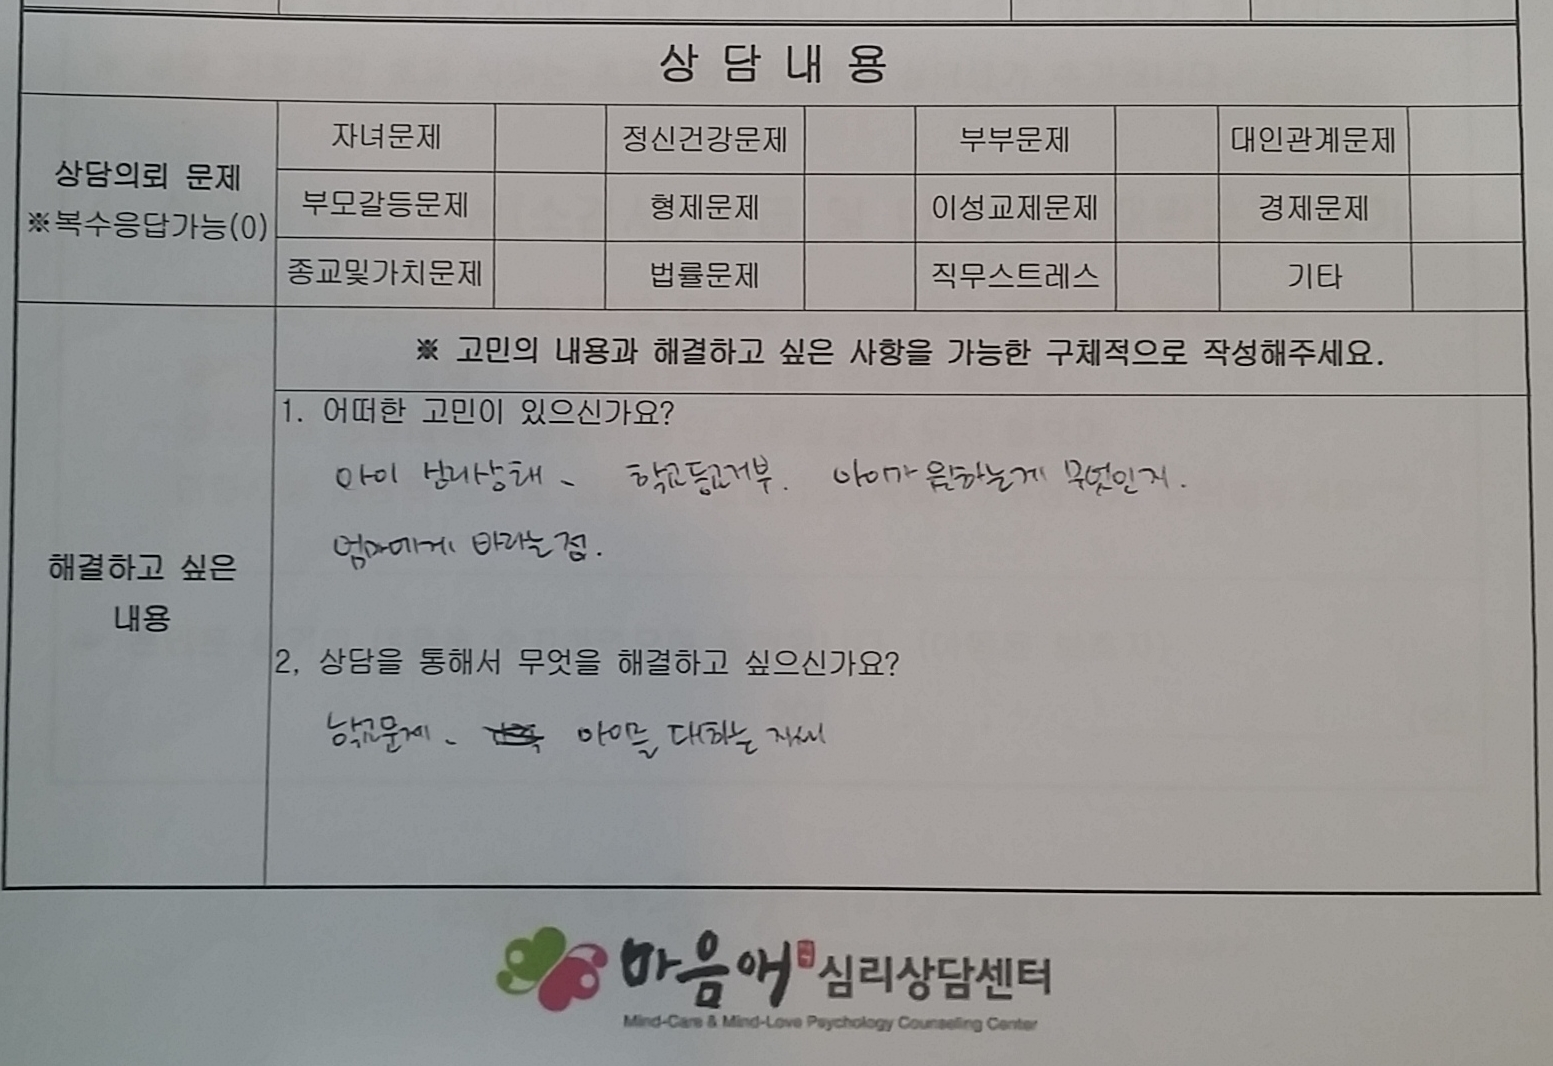 상 담 내 용
상담의뢰 문제
※복수응답가능(0)
자녀문제 정신건강문제 부부문제 대인관계문제
부모갈등문제 형제문제 이성교제문제 경제문제
종교및가치문제 법률문제 직무스트레스 기타
해결하고 싶은
내용
※ 고민의 내용과 해결하고 싶은 사항을 가능한 구체적으로 작성해주세요.
1. 어떠한 고민이 있으신가요?
아이 심리상태、 학교등교거부. 아이가 원하는게 무엇인지.
엄마에게 바라는 점.
2, 상담을 통해서 무엇을 해결하고 싶으신가요?
학교문제、 아이를 대하는 자세
마음애 심리상담센터
Mind-Care & Mind-Love Psychology Counseling Center